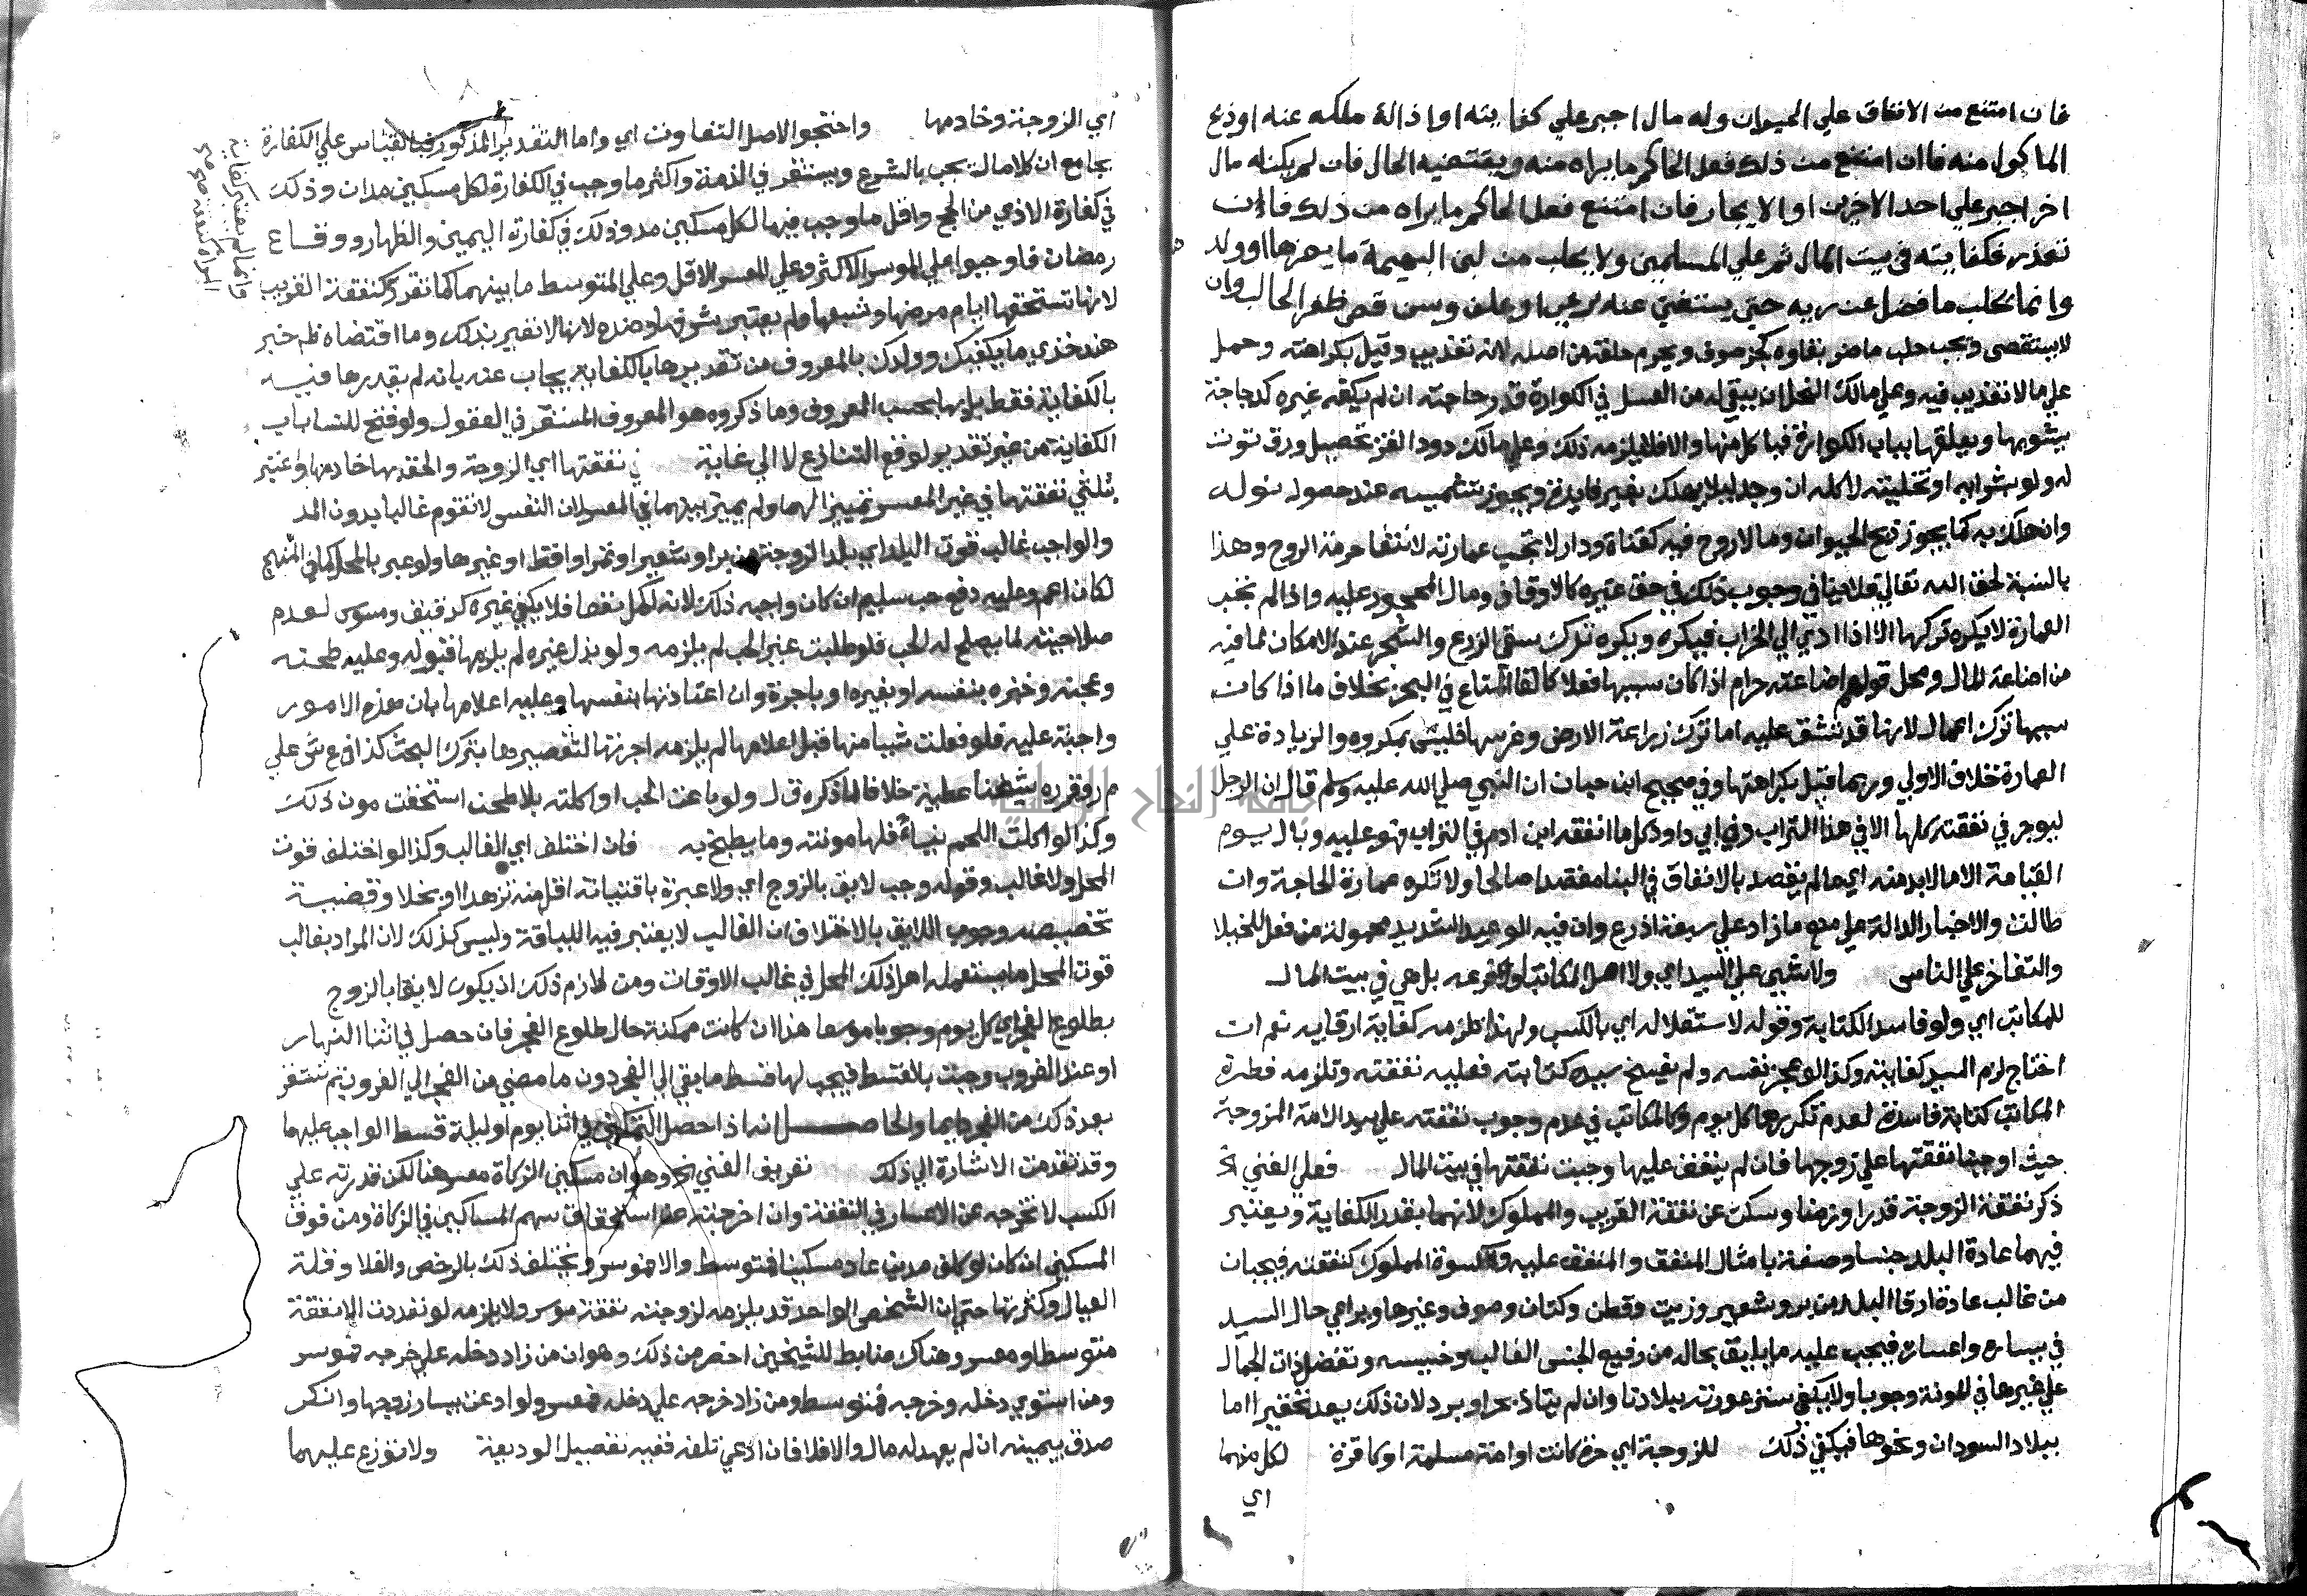 فان امتنع من الانفاق علي الحيوان وله مال اجبر علي كفايته او ازالة ملكه عنه او ذبح
الماكول منه فاان امتنع من ذلك فعل الحاكم ما يراه منه ويقتضيه الحال فان لم يكن له مال
اخر اجبر علي احد الاخرين او الايجار فان امتنع فعل الحاكم ما يراه من ذلك فان
تعذر فكفايته في بيت المال ثم علي المسلمين ولا يحلب من لبن البهيمة ما يضرها او ولد
وانما يحلب ما فضل عن ريه حتي يستغني عنه برعي او علف ويسن قص ظفر الحالب وان
لا يستقصي ويجب حلب ما ضر بقاوه كجز صوف ويحرم حلقه من اصله لانه تعذيب وقيل بكراهته وحمل
علي ما لا تعذيب فيه وعلي مالك النحل ان يبقي له من العسل في الكوارة قدر حاجته ان لم يكفه غيره كدجاجة
يشويها ويعلقها بباب الكوارة فياكل منها والا فلا يلزمه ذلك وعلي مالك دود القز تحصيل ورق توت
له ولو بشرايه او تخليته لاكله ان وجد ليلا يهلك بغير فايدة ويجوز تشميسه عند حصول نوله
وان هلك به كما يجوز ذبح الحيوان وما لا روح فيه كقناة ودار لا تجب عمارته لانتفا حرمة الروح وهذا
بالنسبة لحق الله تعالي فلا ينافي وجوب ذلك في حق غيره كالاوقاف ومال المحجور عليه واذا لم تجب
العمارة لا يكره تركها الا اذا ادي الي الخراب فيكره ويكره ترك سقي الزرع والشجر عند الامكان لما فيه
من اضاعة المال ومحل قولهم اضاعته حرام اذا كان سببها فعلا كالقا متاع في البحر بخلاف ما اذا كان
سببها ترك اعمال لانها قد تشق عليه اما ترك زراعة الارض وغرسها فليس بمكروه والزيادة علي
العمارة خلاف الاولي وربما قيل بكراهتها وفي صحيح ابن حبان ان النبي صلي الله عليه وسلم قال ان الرجل
ليوجر في نفقته كلها الا في هذا التراب وفي ابي داود كل ما انفقه ابن ادم في التراب فهو عليه وبال يوم
القيامة الا ما لا بد منه اي ما لم يقصد بالانفاق في البنا مقصدا صالحا ولا تكره عمارة لحاجة وان
طالت والاخبار الدالة علي منع ما زاد علي سبعة اذرع وان فيه الوعيد الشديد محمولة من فعل للخيلا
والتفاخر علي الناس ولا شي علي السيد اي ولا اصل المكاتب ولا فرعه بل هي في بيت المال
للمكاتب اي ولو فاسد الكتابة وقوله لاستقلاله اي بالكسب ولهذا تلزمه كفاية ارقايه نعم ان
احتاج لزم السيد كفايته وكذا لو عجز نفسه ولم يفسخ سيده كتابته فعليه نفقته وتلزمه فطرة
المكاتب كتابة فاسدة لعدم تكررها كل يوم وكالمكاتب في عدم وجوب نفقته علي سيد الامة المزوجة
حيث اوجبنا نفقتها علي زوجها فان لم ينفق عليها وجبت نفقتها في بيت المال فعلي الغني الخ
ذكر نفقة الزوجة قدرا وزمنا وسكت عن نفقة القريب والمملوك لانهما بقدر الكفاية ويعتبر
فيهما عادة البلد جنسا وصفة بامثال المنفق والمنفق عليه وكسوة المملوك كنفقته فيجبان
من غالب عادة ارقا البلد من بر وشعير وزيت وقطن وكتان وصوف وغيرها ويراعي حال السيد
في يساره واعساره فيجب عليه ما يليق بحاله من رفيع الجنس الغالب وخسيسه وتفضل ذات الجمال
علي غيرها في المونة وجوبا ولا يكفي ستر عورته ببلادنا وان لم يتاذ بحر او برد لان ذلك يعد تحقيرا اما
ببلاد السودان ونحوها فيكفي ذلك للزوجة اي حرة كانت او امة مسلمة او كافرة لكل منهما
اي
اي الزوجة وخادمها واحتجوا لاصل التفاوت اي واما التقدير المذكور فبالقياس علي الكفارة
بجامع ان كلا مال يجب بالشرع ويستقر في الذمة واكثر ما وجب في الكفارة لكل مسكين مدان وذلك
في كفارة الاذي من الحج واقل ما وجب فيها لكل مسكين مد وذلك في كفارة اليمين والظهار ووقاع
رمضان فاوجبوا علي الموسر الاكثر وعلي المعسر الاقل وعلي المتوسط ما بينهما كما تقرر كنفقة القريب
لانها تستحقها ايام مرضها وشبعها ولم يعتبر بشرفها وضده لانها لا تغير بذلك وما اقتضاه ظم خبر
هند خذي ما يكفيك وولدك بالمعروف من تقديرها بالكفاية يجاب عنه بانه لم يقدرها فيه
بالكفاية فقط بل بها بحسب المعروف وما ذكروه هو المعروف المستقر في العقول ولو فتح للنسا باب
الكفاية من غير تقدير لوقع التنازع لا الي غاية في نفقتها اي الزوجة والحق بها خادمها واعتبر
بثلثي نفقتها في غير المعسر تمييزا لهما ولم يميز بينهما في المعسر لان النفس لا تقوم غالبا بدون المد
والواجب غالب قوت البلد اي بلد الزوجة من بر او شعير او تمر او اقط او غيرها ولو عبر بالمحل كما في المنهج
لكان اعم وعليه دفع حب سليم ان كان واجبه ذلك لانه اكمل نفعا فلا يكفي غيره كدقيق ومسوس لعدم
صلاحيته لما يصلح له الحب فلو طلبت غير الحب لم يلزمه ولو بذل غيره لم يلزمها قبوله وعليه طحنه
وعجنه وخبزه بنفسه او بغيره او باجرة وان اعتادتها بنفسها وعليه اعلامها بان هذه الامور
واجبة عليه فلو فعلت شيا منها قبل اعلامها لم يلزمه اجرتها لتقصيرها بترك البحث كذا في ع ش علي
م ر وقرره شيخنا عطية خلافا لما ذكره ق ل ولو باعت الحب او اكلته بلا طحن استحقت مون ذلك
وكذا لو اكلت اللحم نيا فلها مونته وما يطبخ به فان اختلف اي الغالب وكذا لو اختلف قوت
المحل ولا غالب وقوله وجب لايق بالزوج اي ولا عبرة باقتياته اقل منه تزهدا او بخلا وقضية
تخصيصه وجوب اللايق بالاختلاف ان الغالب لا يعتبر فيه اللياقة وليس كذلك لان المراد بغالب
قوت المحل ما يستعمله اهل ذلك المحل في غالب الاوقات ومن لازم ذلك ان يكون لايقا بالزوج
بطلوع الفجر اي كل يوم وجوبا موسعا هذا ان كانت ممكنة حال طلوع الفجر فان حصل في اثنا النهار
او عند الغروب وجبت بالقسط فيجب لها قسط ما بقي الي الفجر دون ما مضي من الفجر الي الغروب ثم تستقر
بعد ذلك من الفجر دايما والحاصل انه اذا حصل التمكين في اثنا يوم او ليلة قسط الواجب عليهما
وقد تقدمت الاشارة الي ذلك تعريف الغني الخ وهو ان مسكين الزكاة معسر هنا لكن قدرته علي
الكسب لا تخرجه عن الاعسار في النفقة وان اخرجته عن استحقاق سهم المساكين في الزكاة ومن فوق
المسكين ان كان لو كلف مدين عاد مسكينا فمتوسط والا فموسر ويختلف ذلك بالرخص والغلا وقلة
العيال وكثرتها حتي ان الشخص الواحد قد يلزمه لزوجته نفقة موسر ولا يلزمه لو تعددت الا نفقة
متوسط او معسر وهناك ضابط للشيخين اخصر من ذلك وهو ان من زاد دخله علي خرجه فموسر
ومن استوي دخله وخرجه فمتوسط ومن زاد خرجه علي دخله فمعسر ولو ادعت يسار زوجها وانكر
صدق بيمينه ان لم يعهد له مال والا فلا فان ادعي تلفه ففيه تفصيل الوديعة ولا توزع عليهما
وانما لم يعتبر كفاية
المراة كنفقة
جامعة النجاح الوطنية